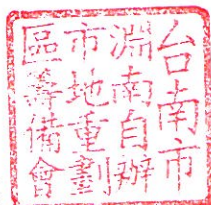 台南市
淵南自辦
市地重劃
區籌備會